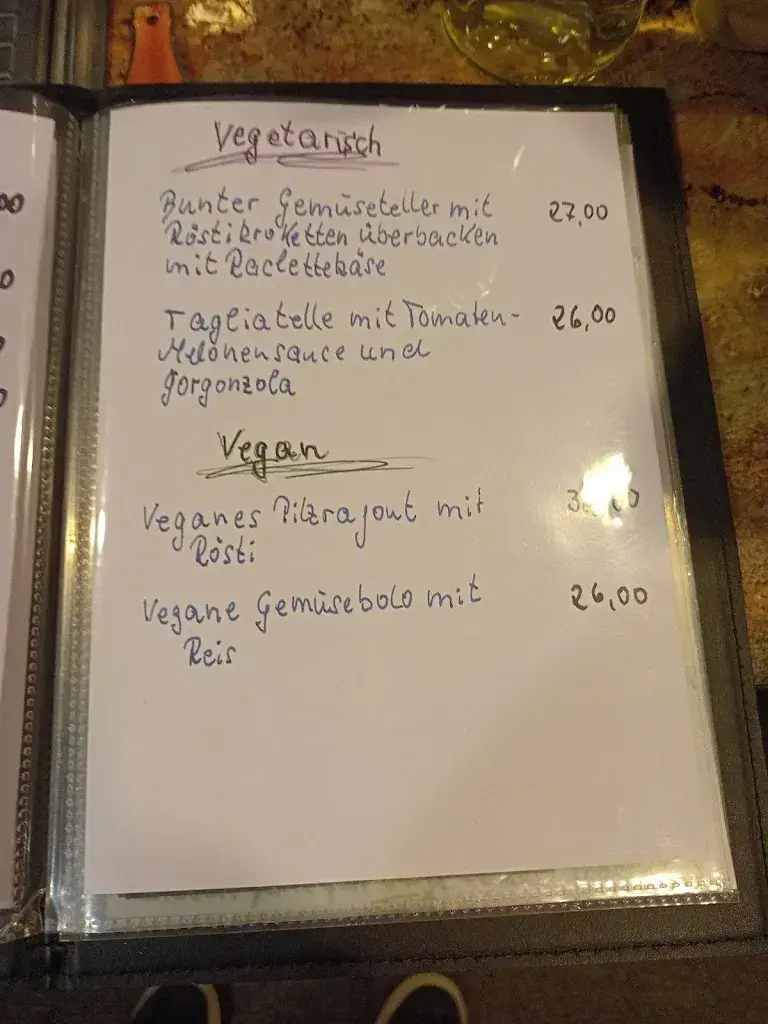 Vegetarisch
Bunter Gemüseteller mit 27,00
Röstikroketten überbacken
mit Raclettekäse
Tagliatelle mit Tomaten- 26,00
Melonensauce und
Gorgonzola
Vegan
Veganes Pilzrajout mit
Rösti
Vegane Gemüsebolo mit 26,00
Reis